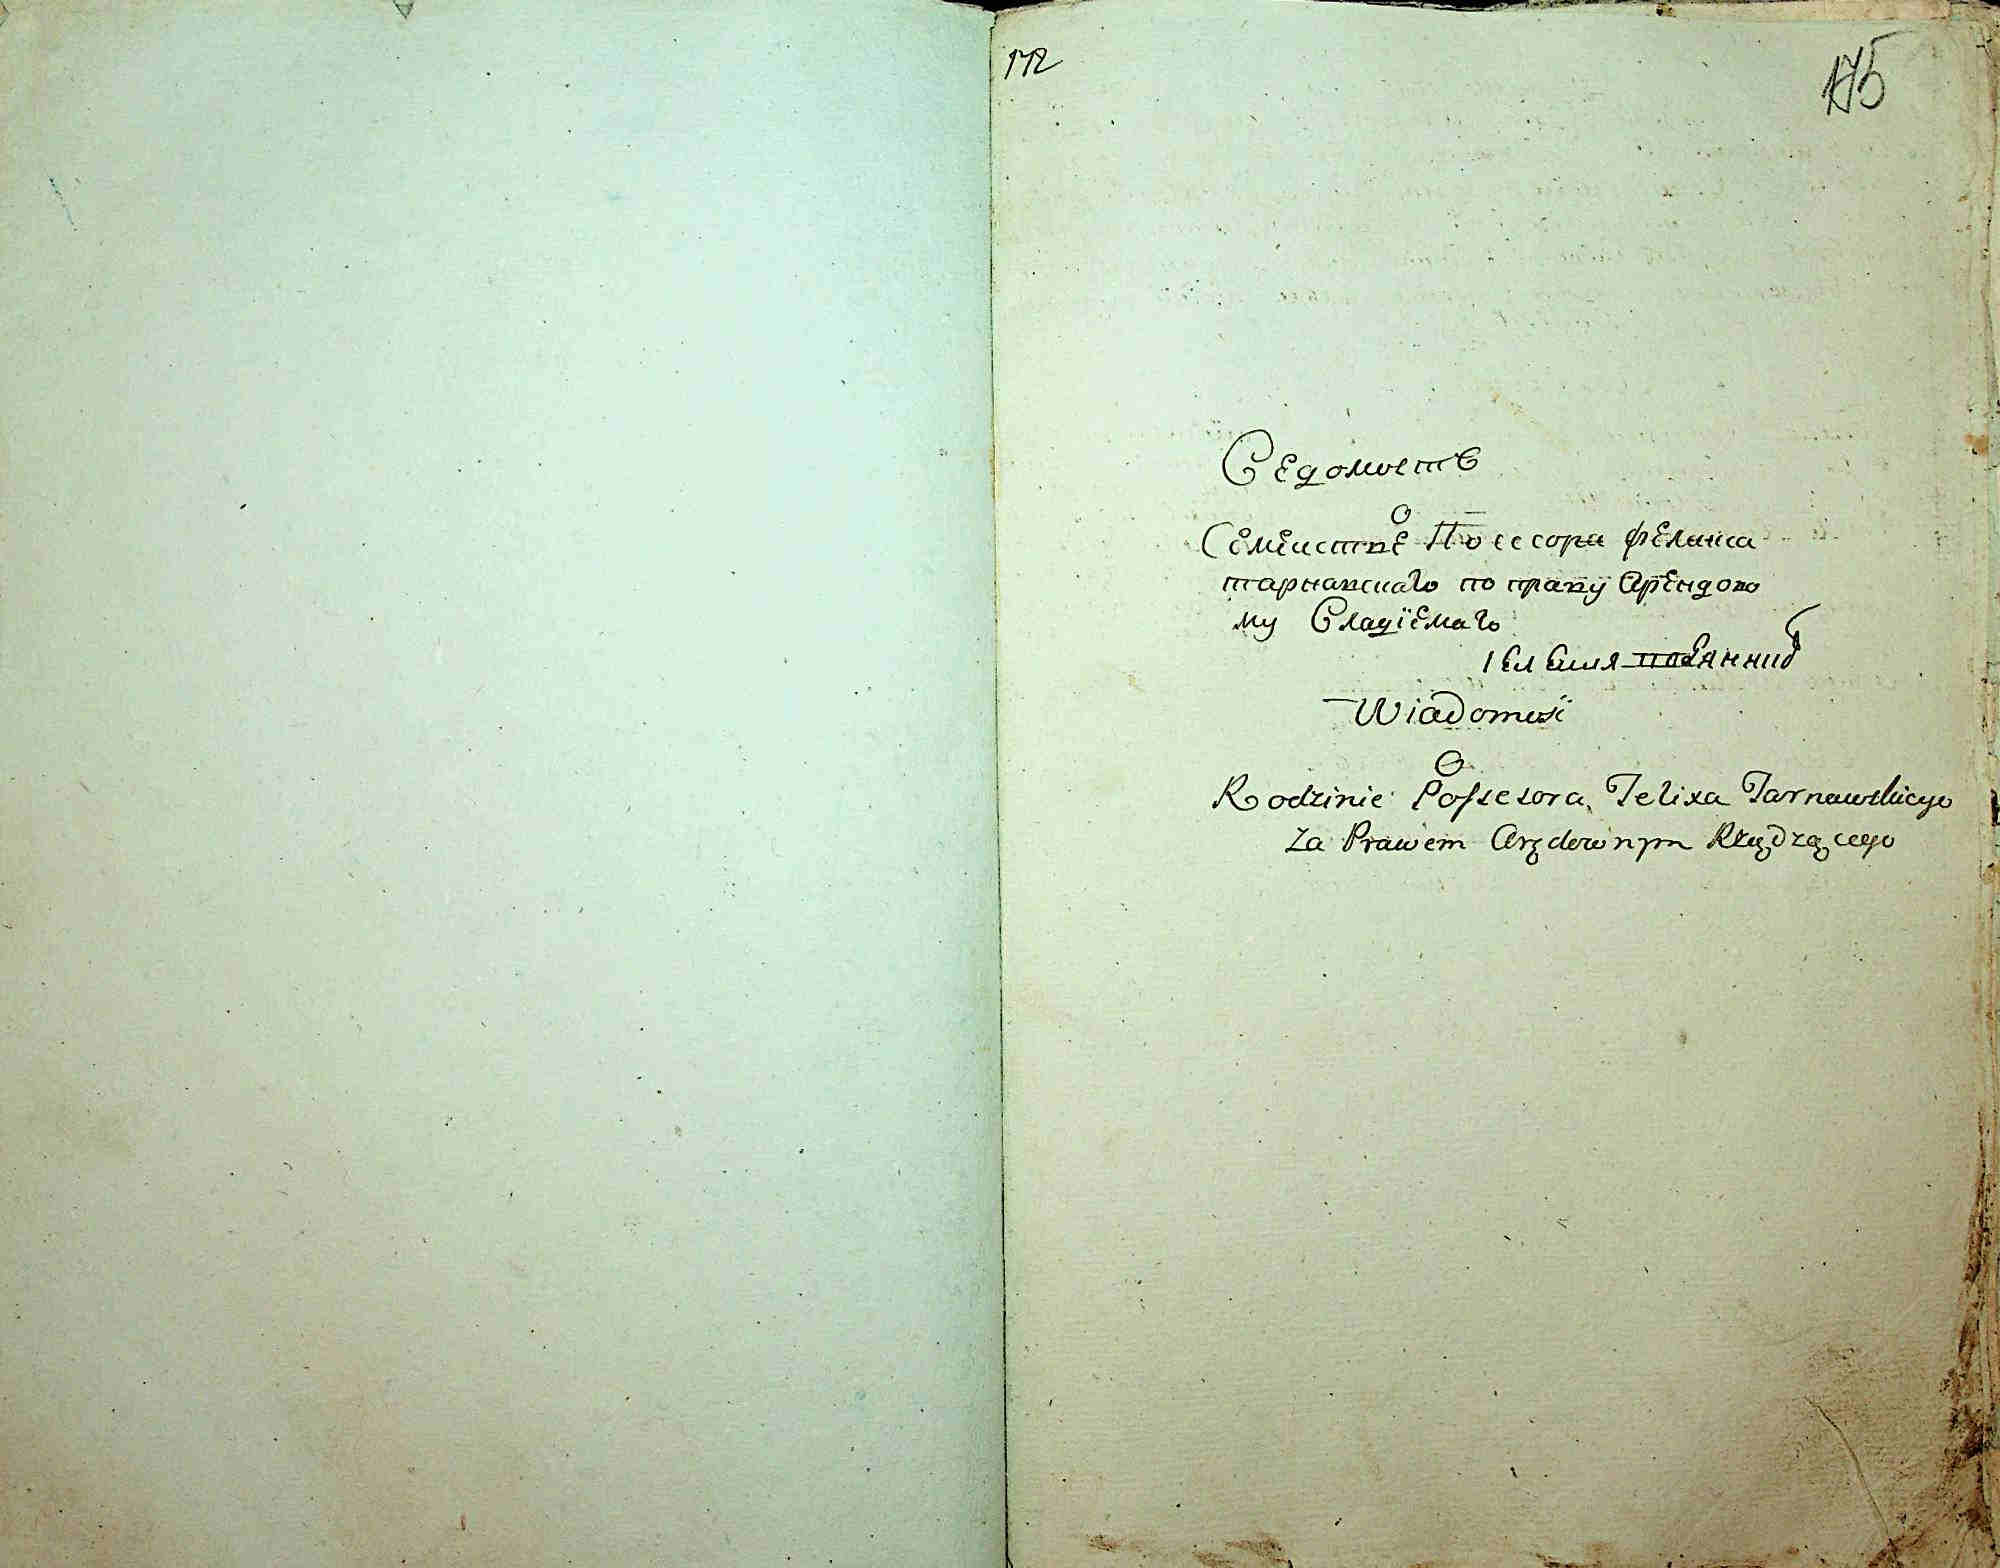 172
175
Ведомость
О
Семействе Поссесора феликса
тарнавскаго по праву Арендово
му Владїемаго
Wiadomość
O
Rodzinie Possesora Felixa Tarnawskiego
za Prawem Arędownym Rządzącego